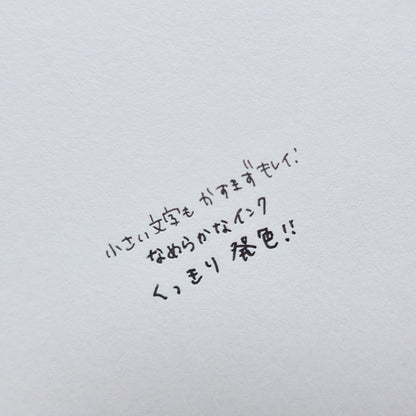 小さい文字も かすまず キレイ!
なめらかなインク
くっきり 発色!!